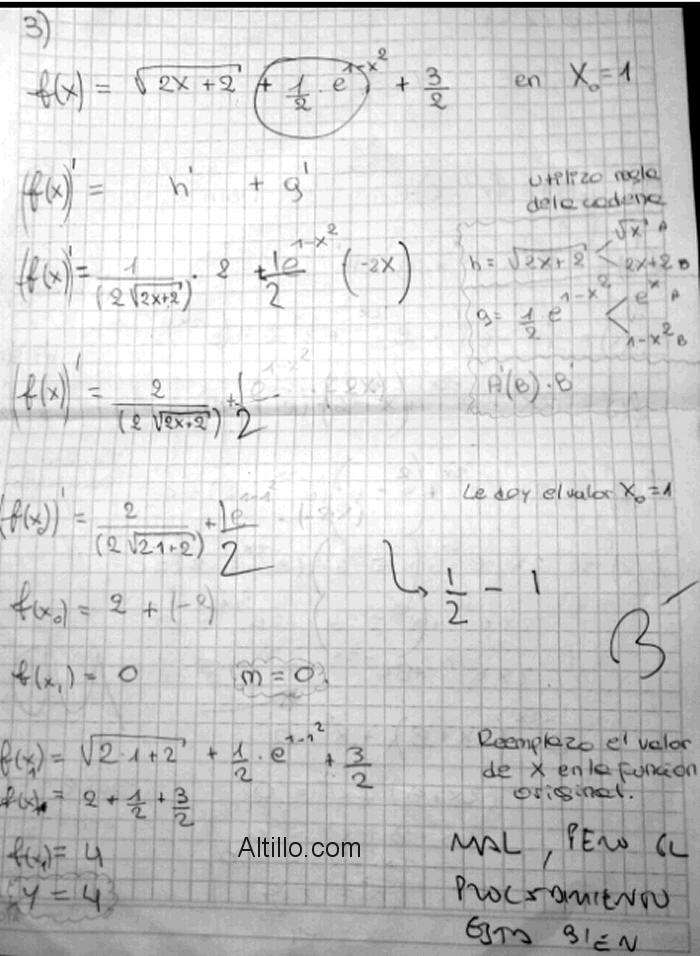 3)
f(x) = √(2x+2) + 1/2 · e^(1-x²) + 3/2 en X₀=1
(f(x))' = h' + g'
utilizo regla
de la cadena
(f(x))' = 1/(2√(2x+2)) · 2 + 1e^(1-x²)/2 (-2x)
h = √(2x+2) √x A
2x+2 B
g = 1/2 e^(1-x²) e^x A
1-x² B
(f(x))' = 2/(2√(2x+2)) + 1e^(1-x²)/2 · (-2x)
A'(B) · B'
Le doy el valor X₀=1
(f(x))' = 2/(2√(2·1+2)) + 1e^(1-1²)/2 · (-2·1)
1/2 - 1
f(x₀) = 2 + (-2)
B-
f(x₁) = 0 m = 0.
f(x₁) = √(2·1+2) + 1/2 · e^(1-1²) + 3/2
Reemplazo el valor
de x en la función
original.
f(x) = 2 + 1/2 + 3/2
f(x₁) = 4
Altillo.com
y = 4
MAL, PERO EL
PROCEDIMIENTO
ESTA BIEN